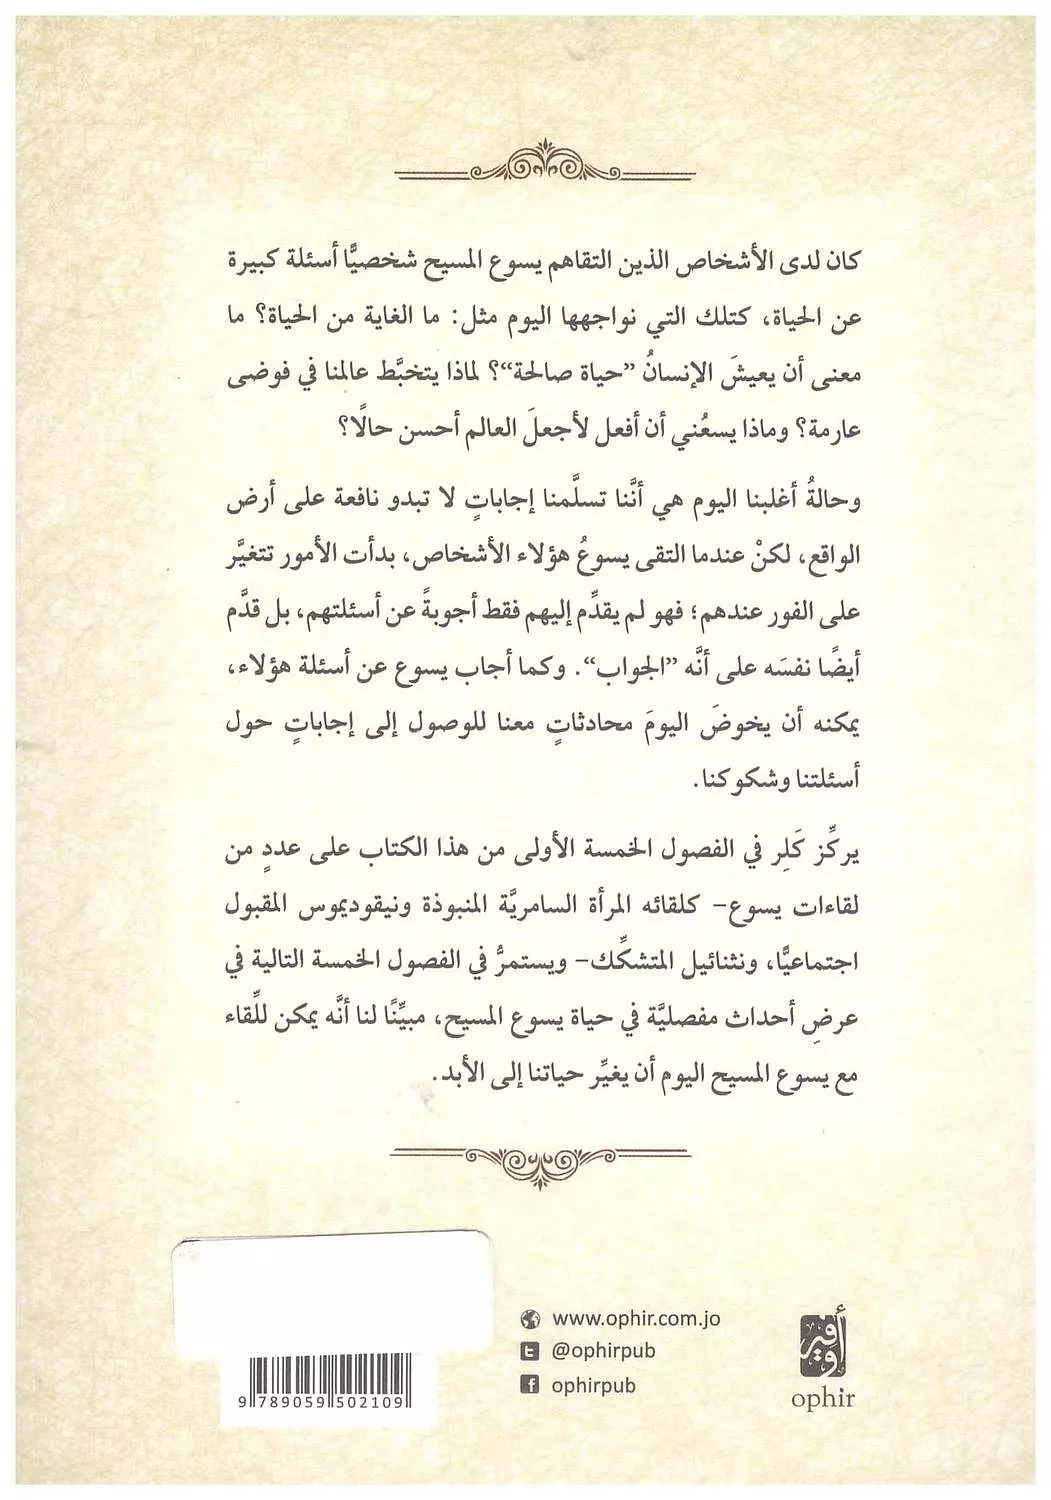 كان لدى الأشخاص الذين التقاهم يسوع المسيح شخصيًّا أسئلة كبيرة
عن الحياة، كتلك التي نواجهها اليوم مثل: ما الغاية من الحياة؟ ما
معنى أن يعيشَ الإنسانُ ”حياة صالحة“؟ لماذا يتخبَّط عالمنا في فوضى
عارمة؟ وماذا يسعُني أن أفعل لأجعلَ العالم أحسن حالًا؟
وحالةُ أغلبنا اليوم هي أنَّنا تسلَّمنا إجاباتٍ لا تبدو نافعة على أرض
الواقع، لكنْ عندما التقى يسوعُ هؤلاء الأشخاص، بدأت الأمور تتغيَّر
على الفور عندهم؛ فهو لم يقدِّم إليهم فقط أجوبةً عن أسئلتهم، بل قدَّم
أيضًا نفسَه على أنَّه ”الجواب“. وكما أجاب يسوع عن أسئلة هؤلاء،
يمكنه أن يخوضَ اليومَ محادثاتٍ معنا للوصول إلى إجاباتٍ حول
أسئلتنا وشكوكنا.
يركِّز كَلِر في الفصول الخمسة الأولى من هذا الكتاب على عددٍ من
لقاءات يسوع- كلقائه المرأة السامريَّة المنبوذة ونيقوديموس المقبول
اجتماعيًّا، ونثنائيل المتشكِّك- ويستمرُّ في الفصول الخمسة التالية في
عرضِ أحداث مفصليَّة في حياة يسوع المسيح، مبيِّنًا لنا أنَّه يمكن للِّقاء
مع يسوع المسيح اليوم أن يغيِّر حياتنا إلى الأبد.
www.ophir.com.jo
@ophirpub
ophirpub
أوفير
ophir
9 789059 502109